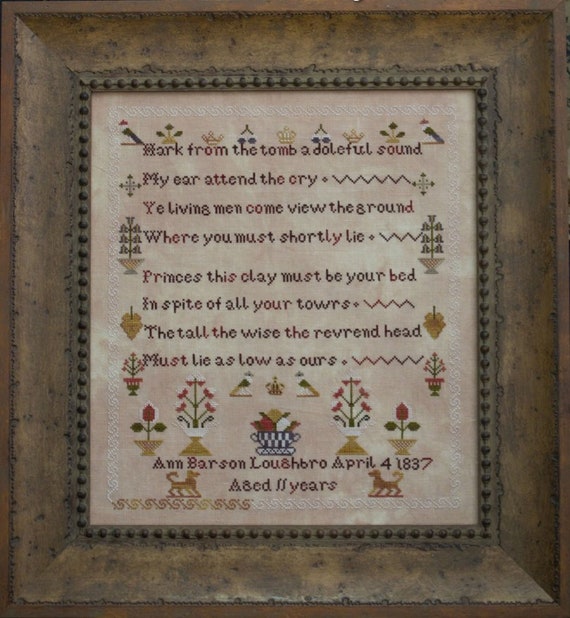 Hark from the tomb a doleful sound
My ear attend the cry
Ye living men come view the ground
Where you must shortly lie
Princes this clay must be your bed
In spite of all your towrs
The tall the wise the revrend head
Must lie as low as ours
Ann Barson Loughbro April 4 1837
Aged 11 years